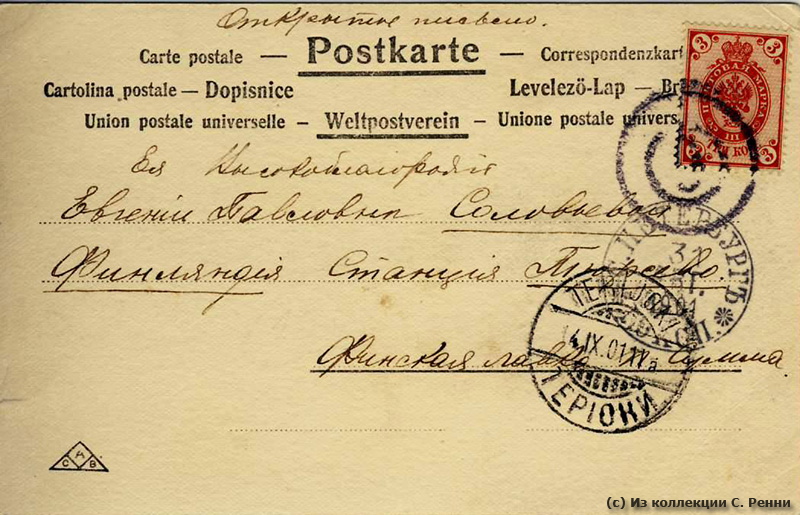 Открытое письмо.
Carte postale — Postkarte — Correspondenzkart
Cartolina postale — Dopisnice Levelező-Lap — Br
Union postale universelle — Weltpostverein — Unione postale univers
3 3
ПОЧТОВАЯ МАРКА
ТРИ КОП
3 3
Ея Высокоблагородію
Евгеніи Павловнѣ Соловьевой
Финляндія Станція
С.ПЕТЕРБУРГЪ
31
Финская лавка
14.IX.01
ТЕРІОКИ
C A B
(c) Из коллекции С. Ренни